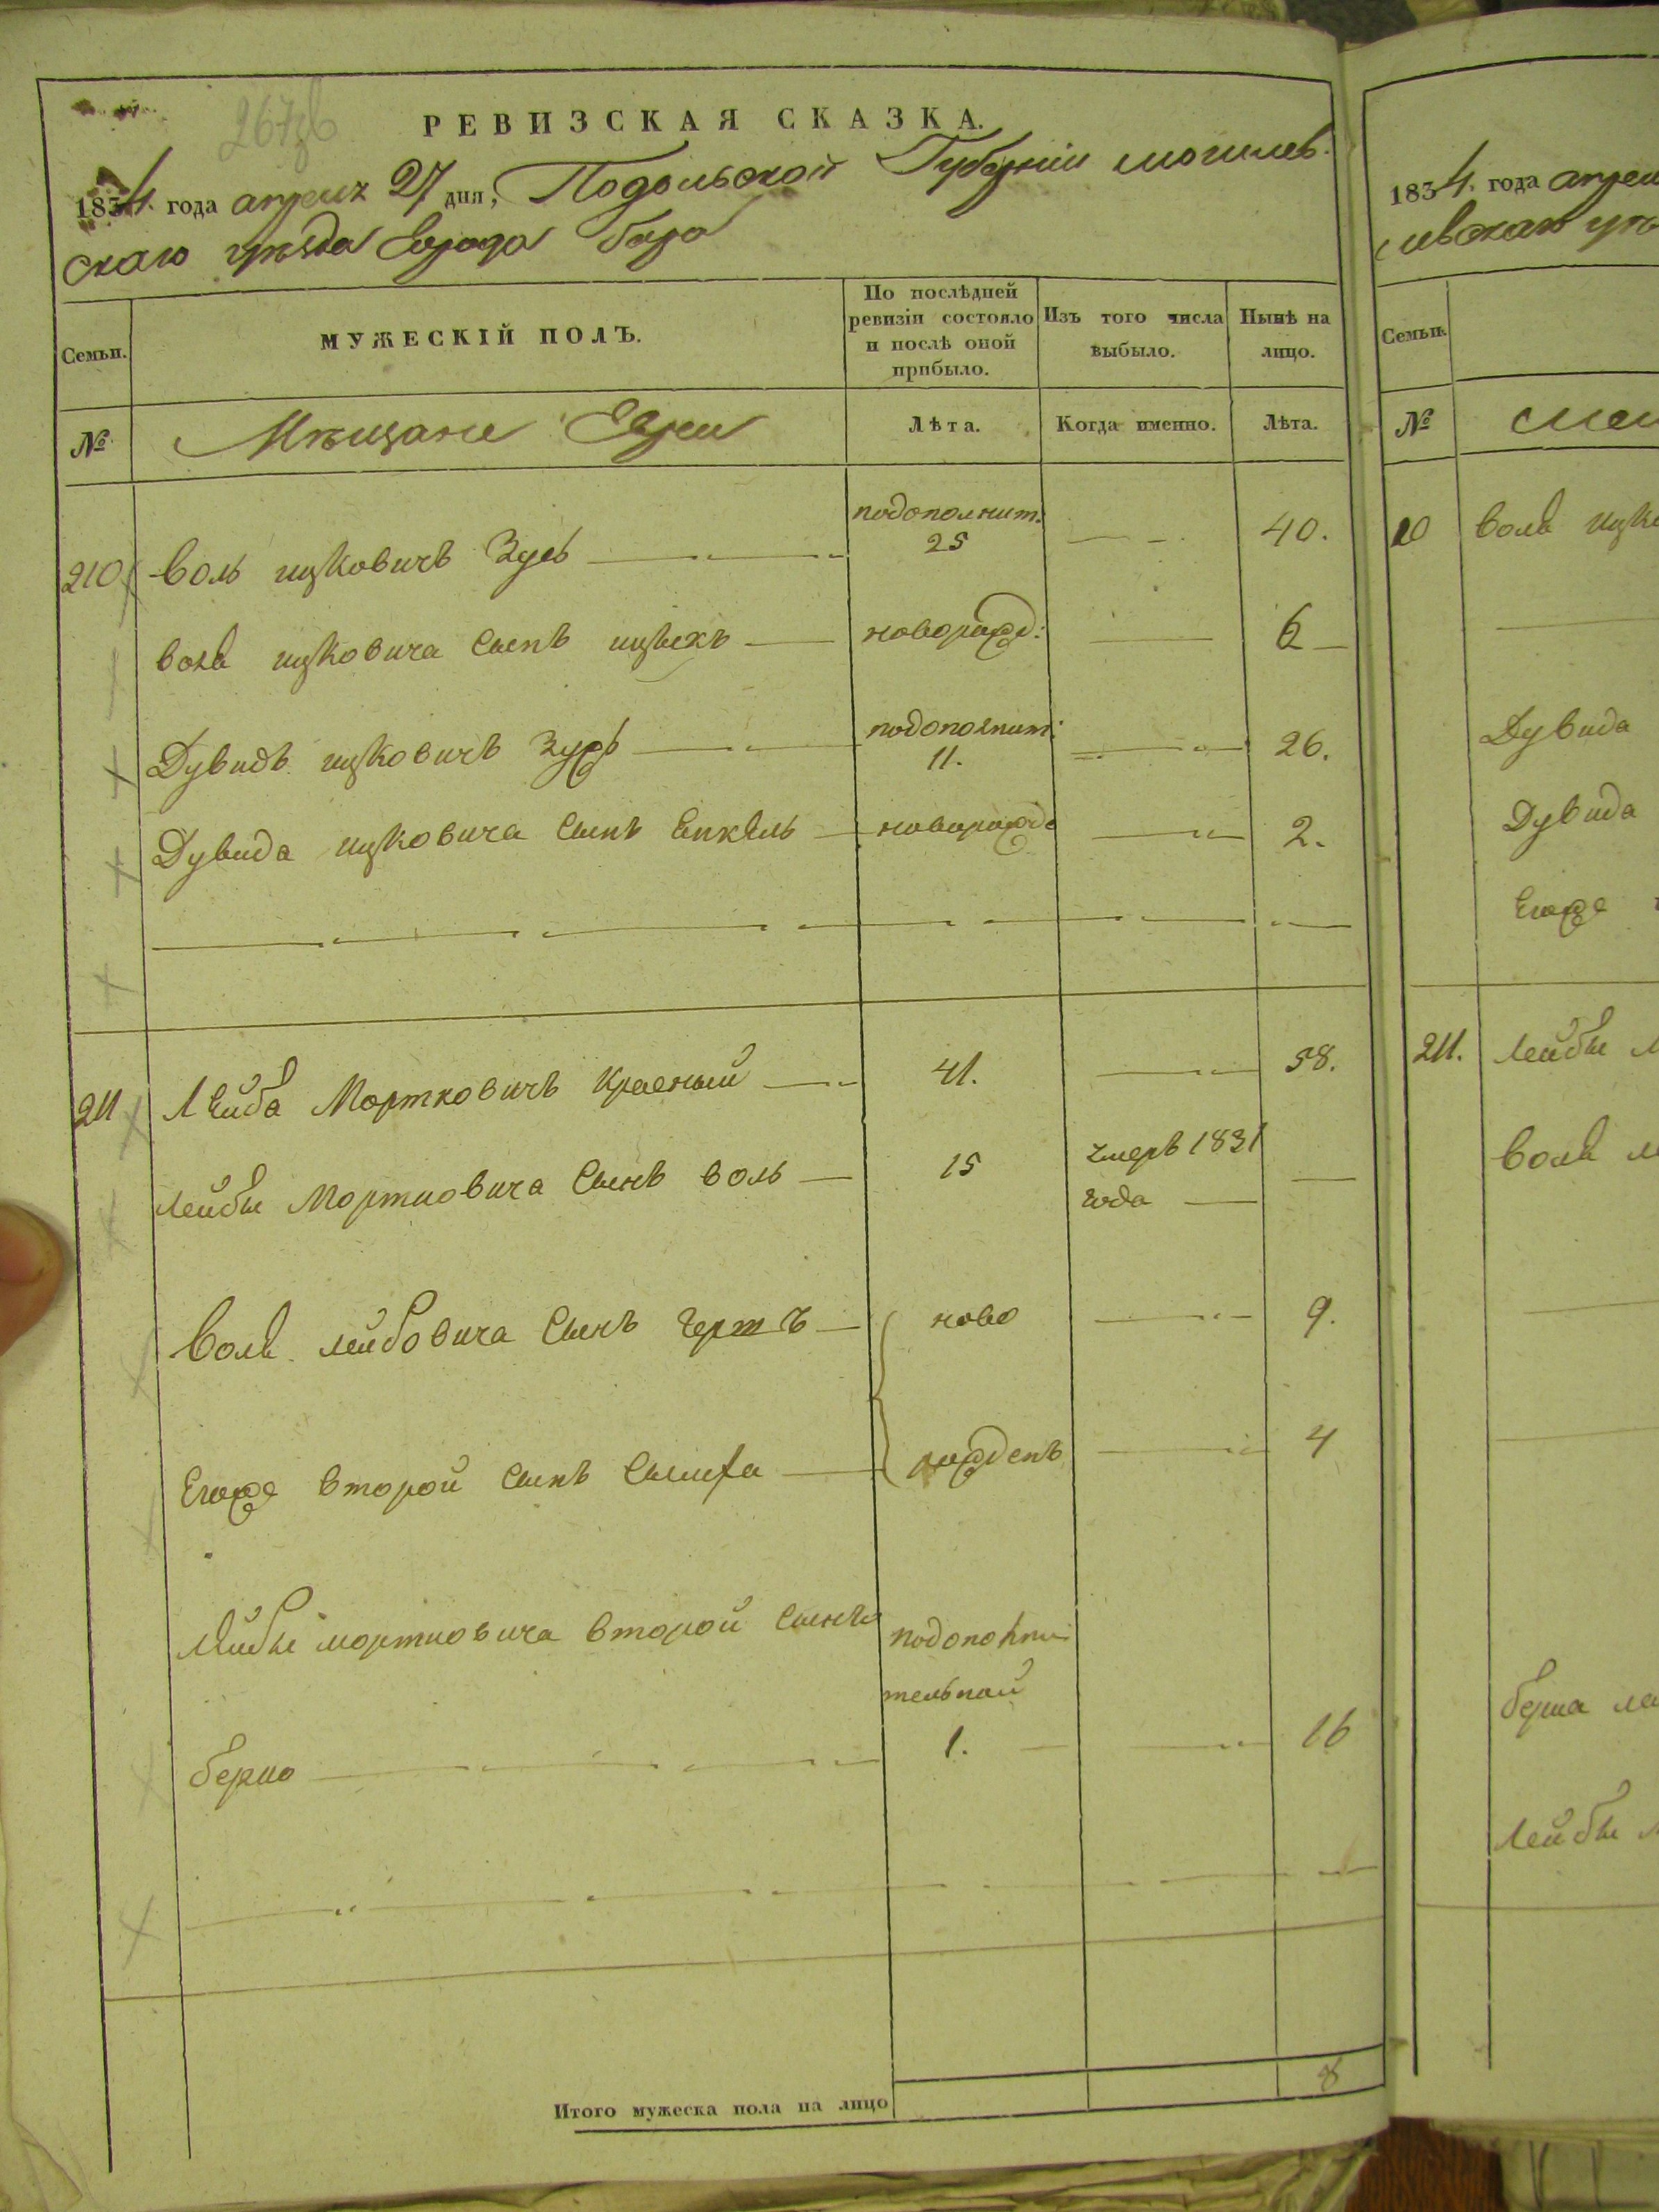 267зв
РЕВИЗСКАЯ СКАЗКА.
1834. года апреля 27 дня, Подольской Губернии могилев-
скаго уѣзда города бара
Семьи.
МУЖЕСКІЙ ПОЛЪ.
По послѣдней ревизіи состояло и послѣ оной прибыло.
Изъ того числа выбыло.
Нынѣ на лицо.
№
Мѣщане Евреи
Лѣта.
Когда именно.
Лѣта.
подополнит.
210 воль ицковичъ Зусь 25 40.
воля ицковича сынъ новорожд: 6
подополнит:
Дувидъ ицковичъ Зусь 11. 26.
Дувида ицковича сынъ Енкель новорожд 2.
211 Лейба Мортковичъ красный 41. 58.
Лейбы Мортковича сынъ воль 15 умеръ 1831
года
Воля лейбовича сынъ Герш ъ ново 9.
Егоже второй сынъ рожденъ 4
Лейбы мортковича второй сынъ подополни
тельной
берко 1. 16
Итого мужеска пола на лицо 8
1834. года апреля
Семьи.
№
10 Воля ицко
Дувида
Дувида
Егоже
211. Лейбы М
воля ле
берка ле
Лейбы